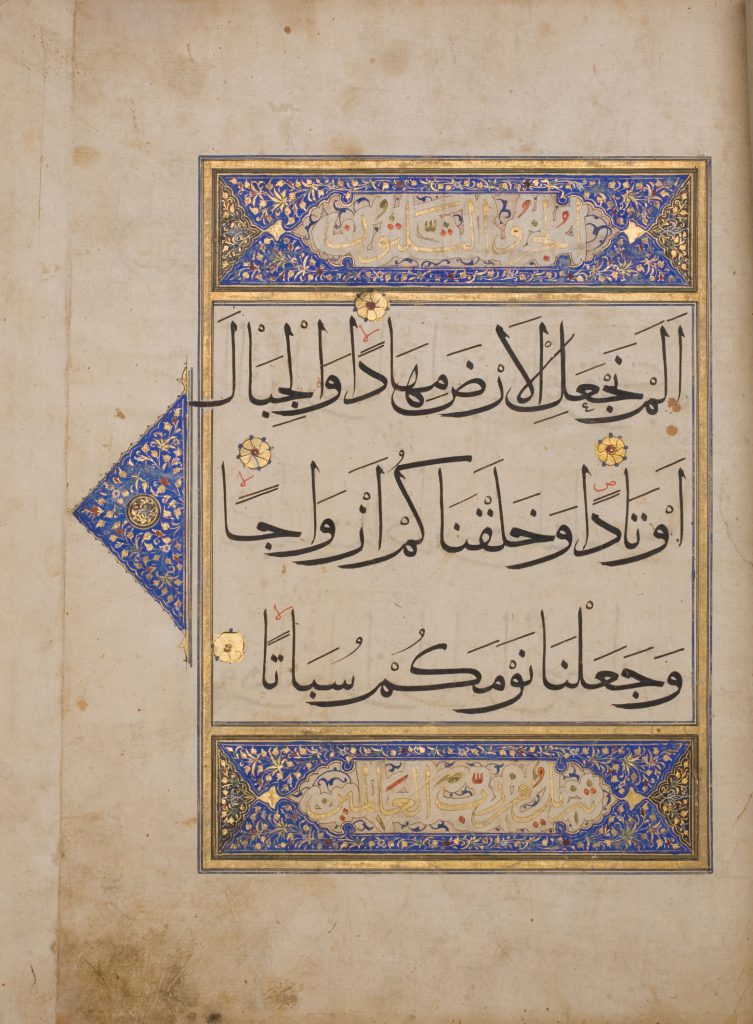 الجُزْوُ الثَّلثُونَ
اَلَمْ نَجْعَلِ الْاَرْضَ مِهَادًاۙ وَالْجِبَالَ
اَوْتَادًاۖ وَخَلَقْنَاكُمْ اَزْوَاجًاۙ
وَجَعَلْنَا نَوْمَكُمْ سُبَاتًاۙ
تنزيلٌ من رَبِّ العَالمين